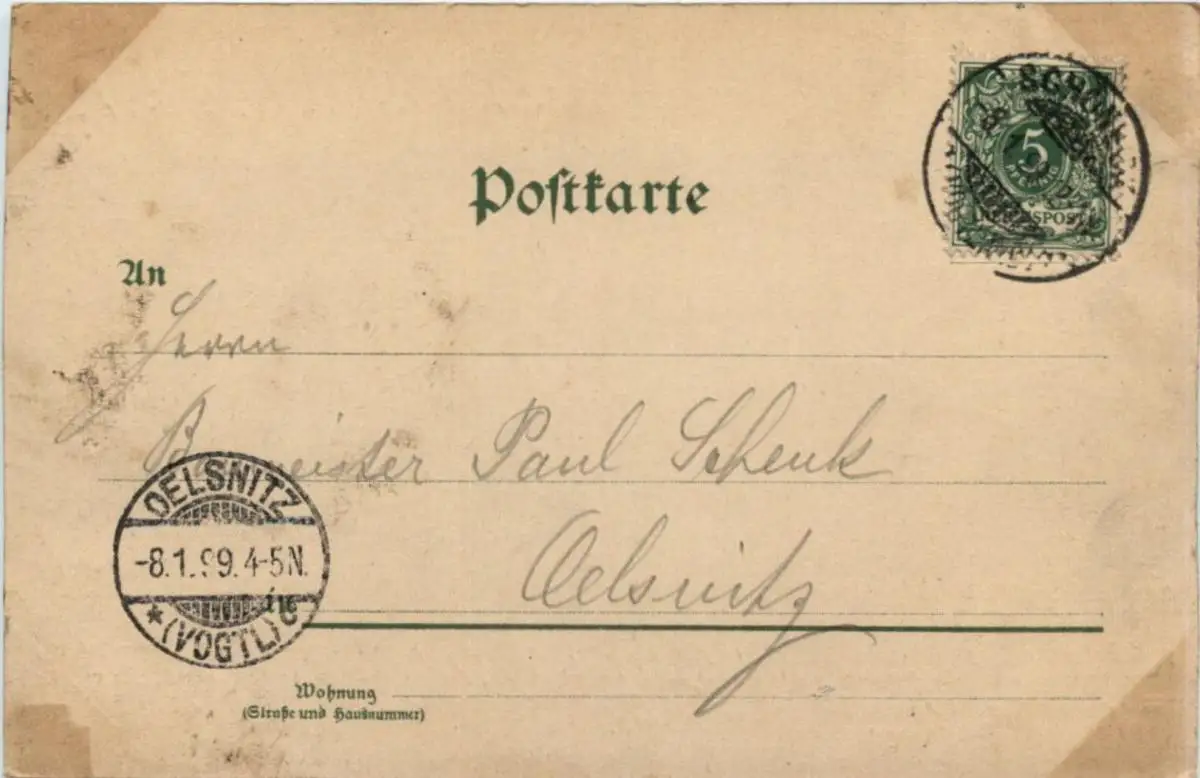 Postkarte
5
PFENNIG
REICHSPOST
An
Herrn
Baumeister Paul Schenk
Oelsnitz
OELSNITZ
-8.1.99.4-5N.
* (VOGTL) c
in
Wohnung
(Straße und Hausnummer)